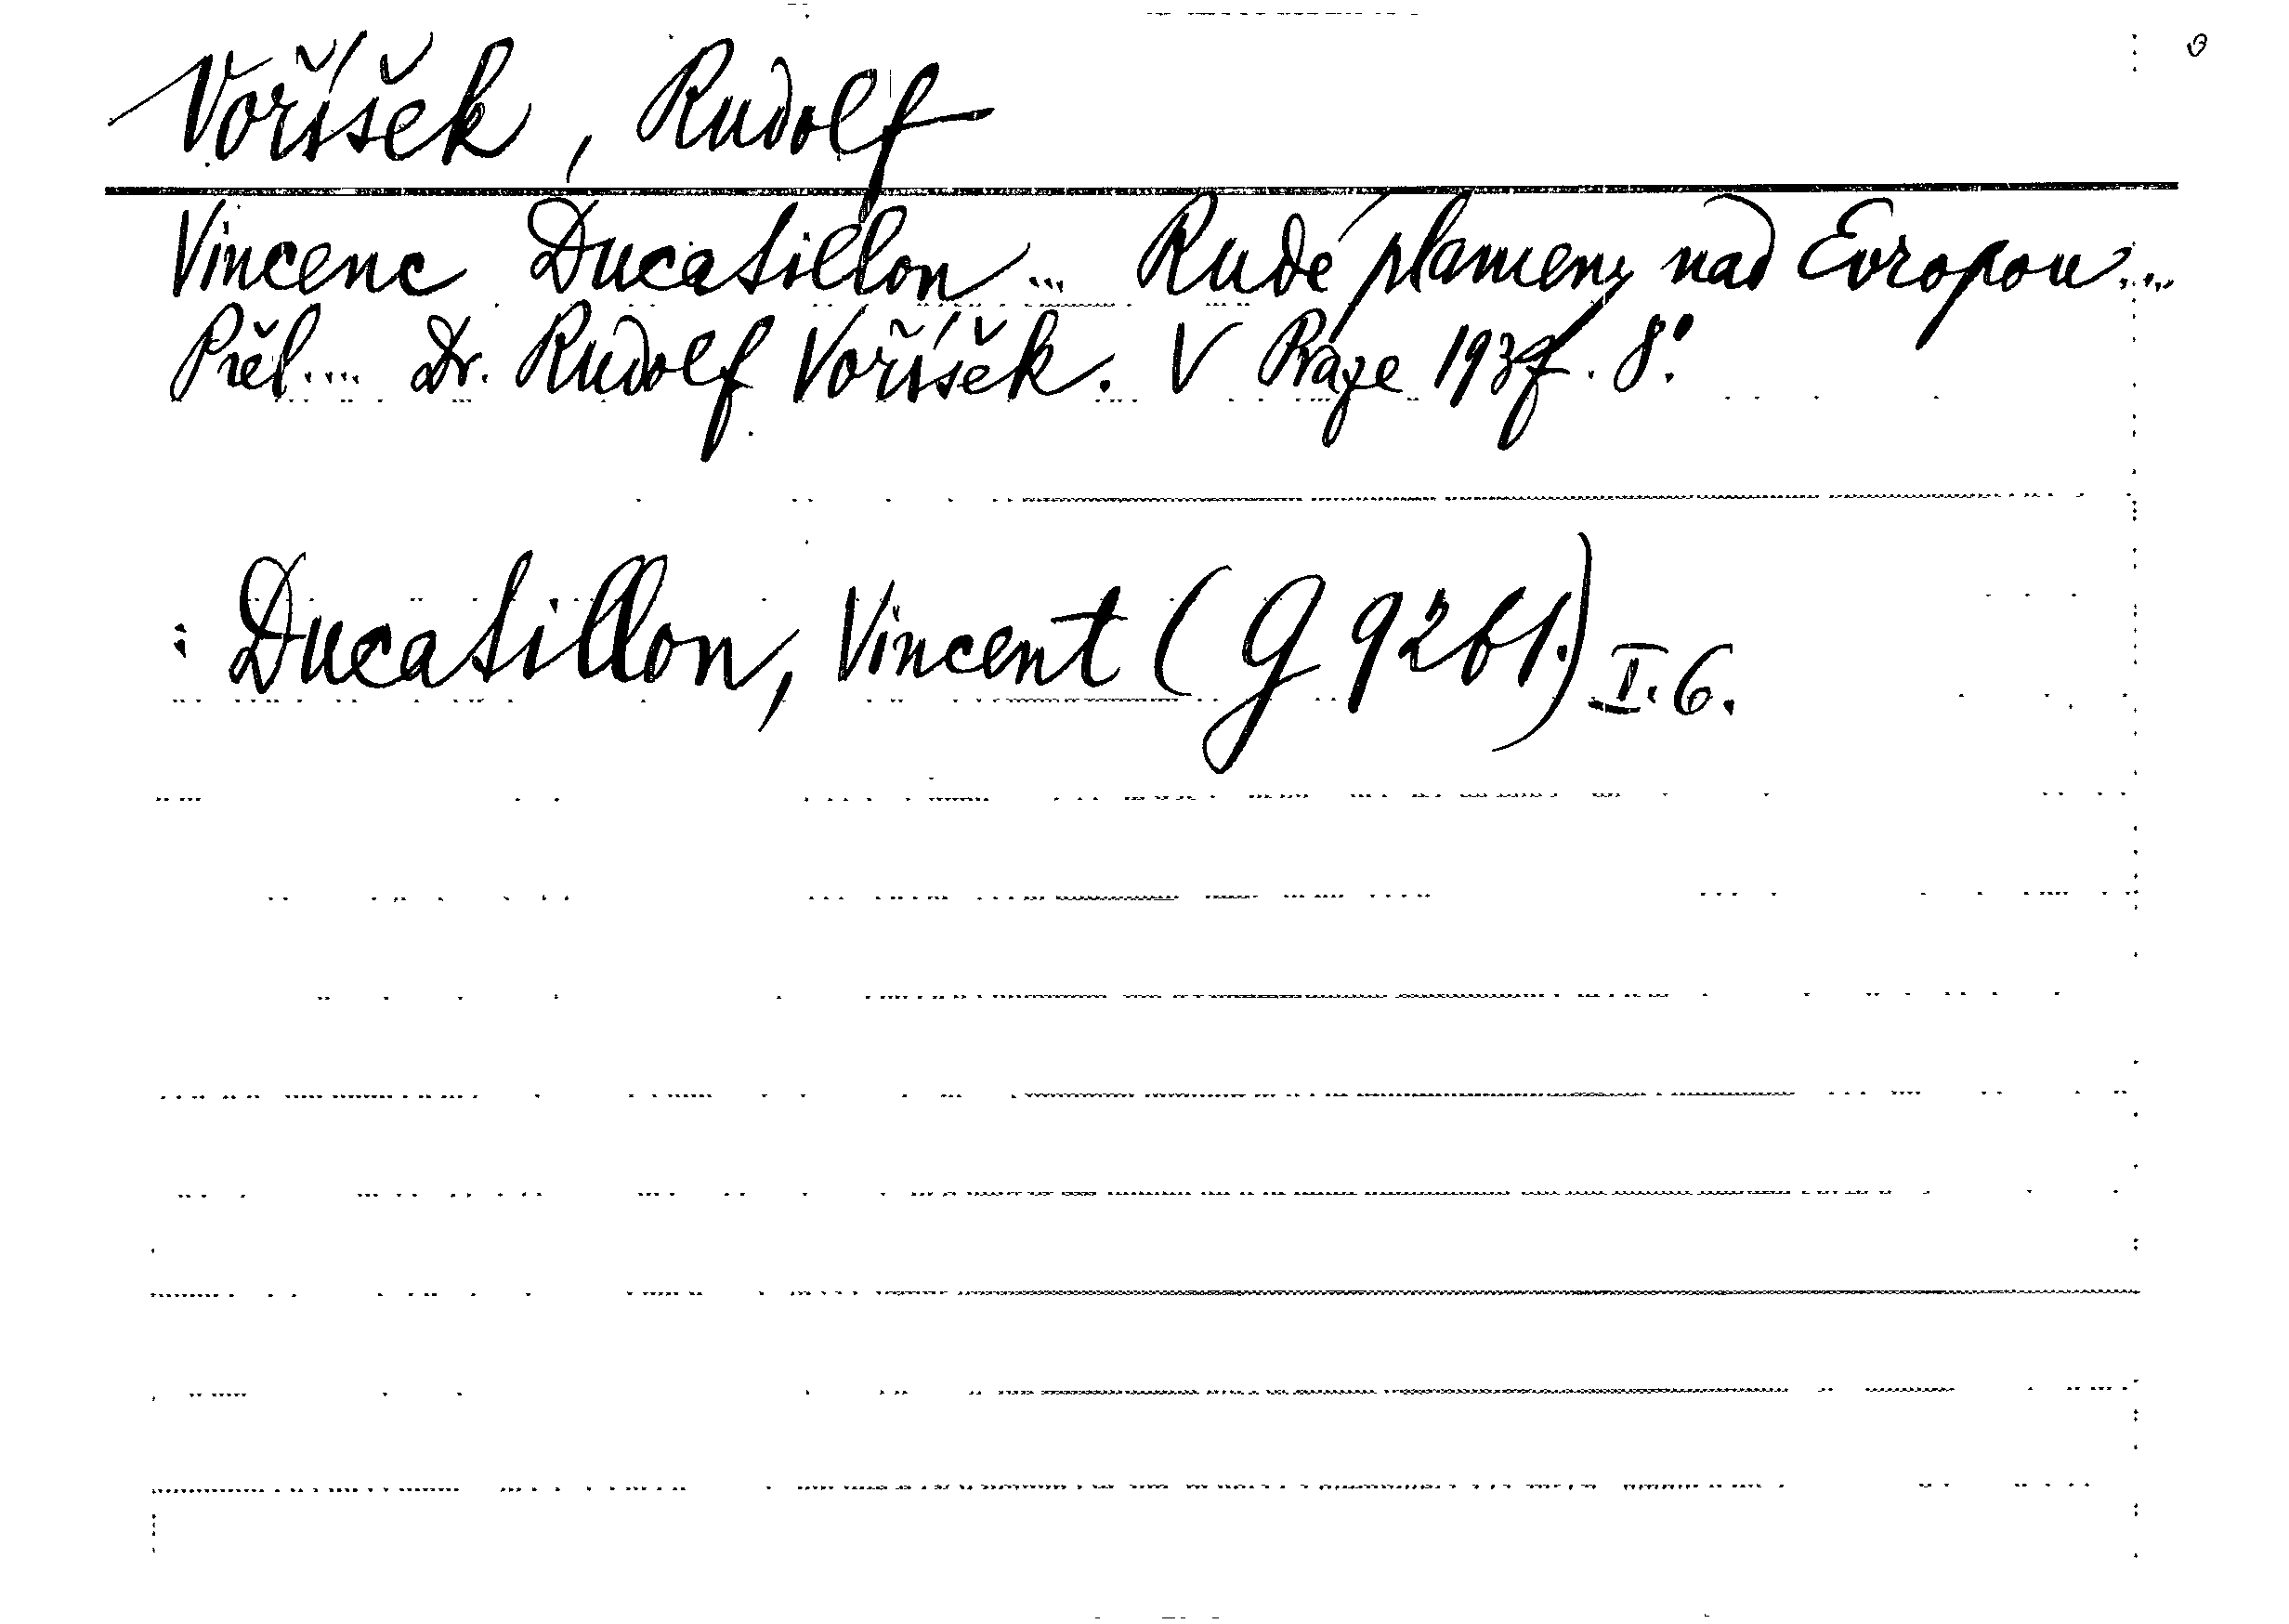 Voříšek, Rudolf
Vincenc Ducatillon ... Rudé plameny nad Evropou ...
Přel.... Dr. Rudolf Voříšek. V Praze 1937. 8°.
: Ducatillon, Vincent (G 9261.) I.6.